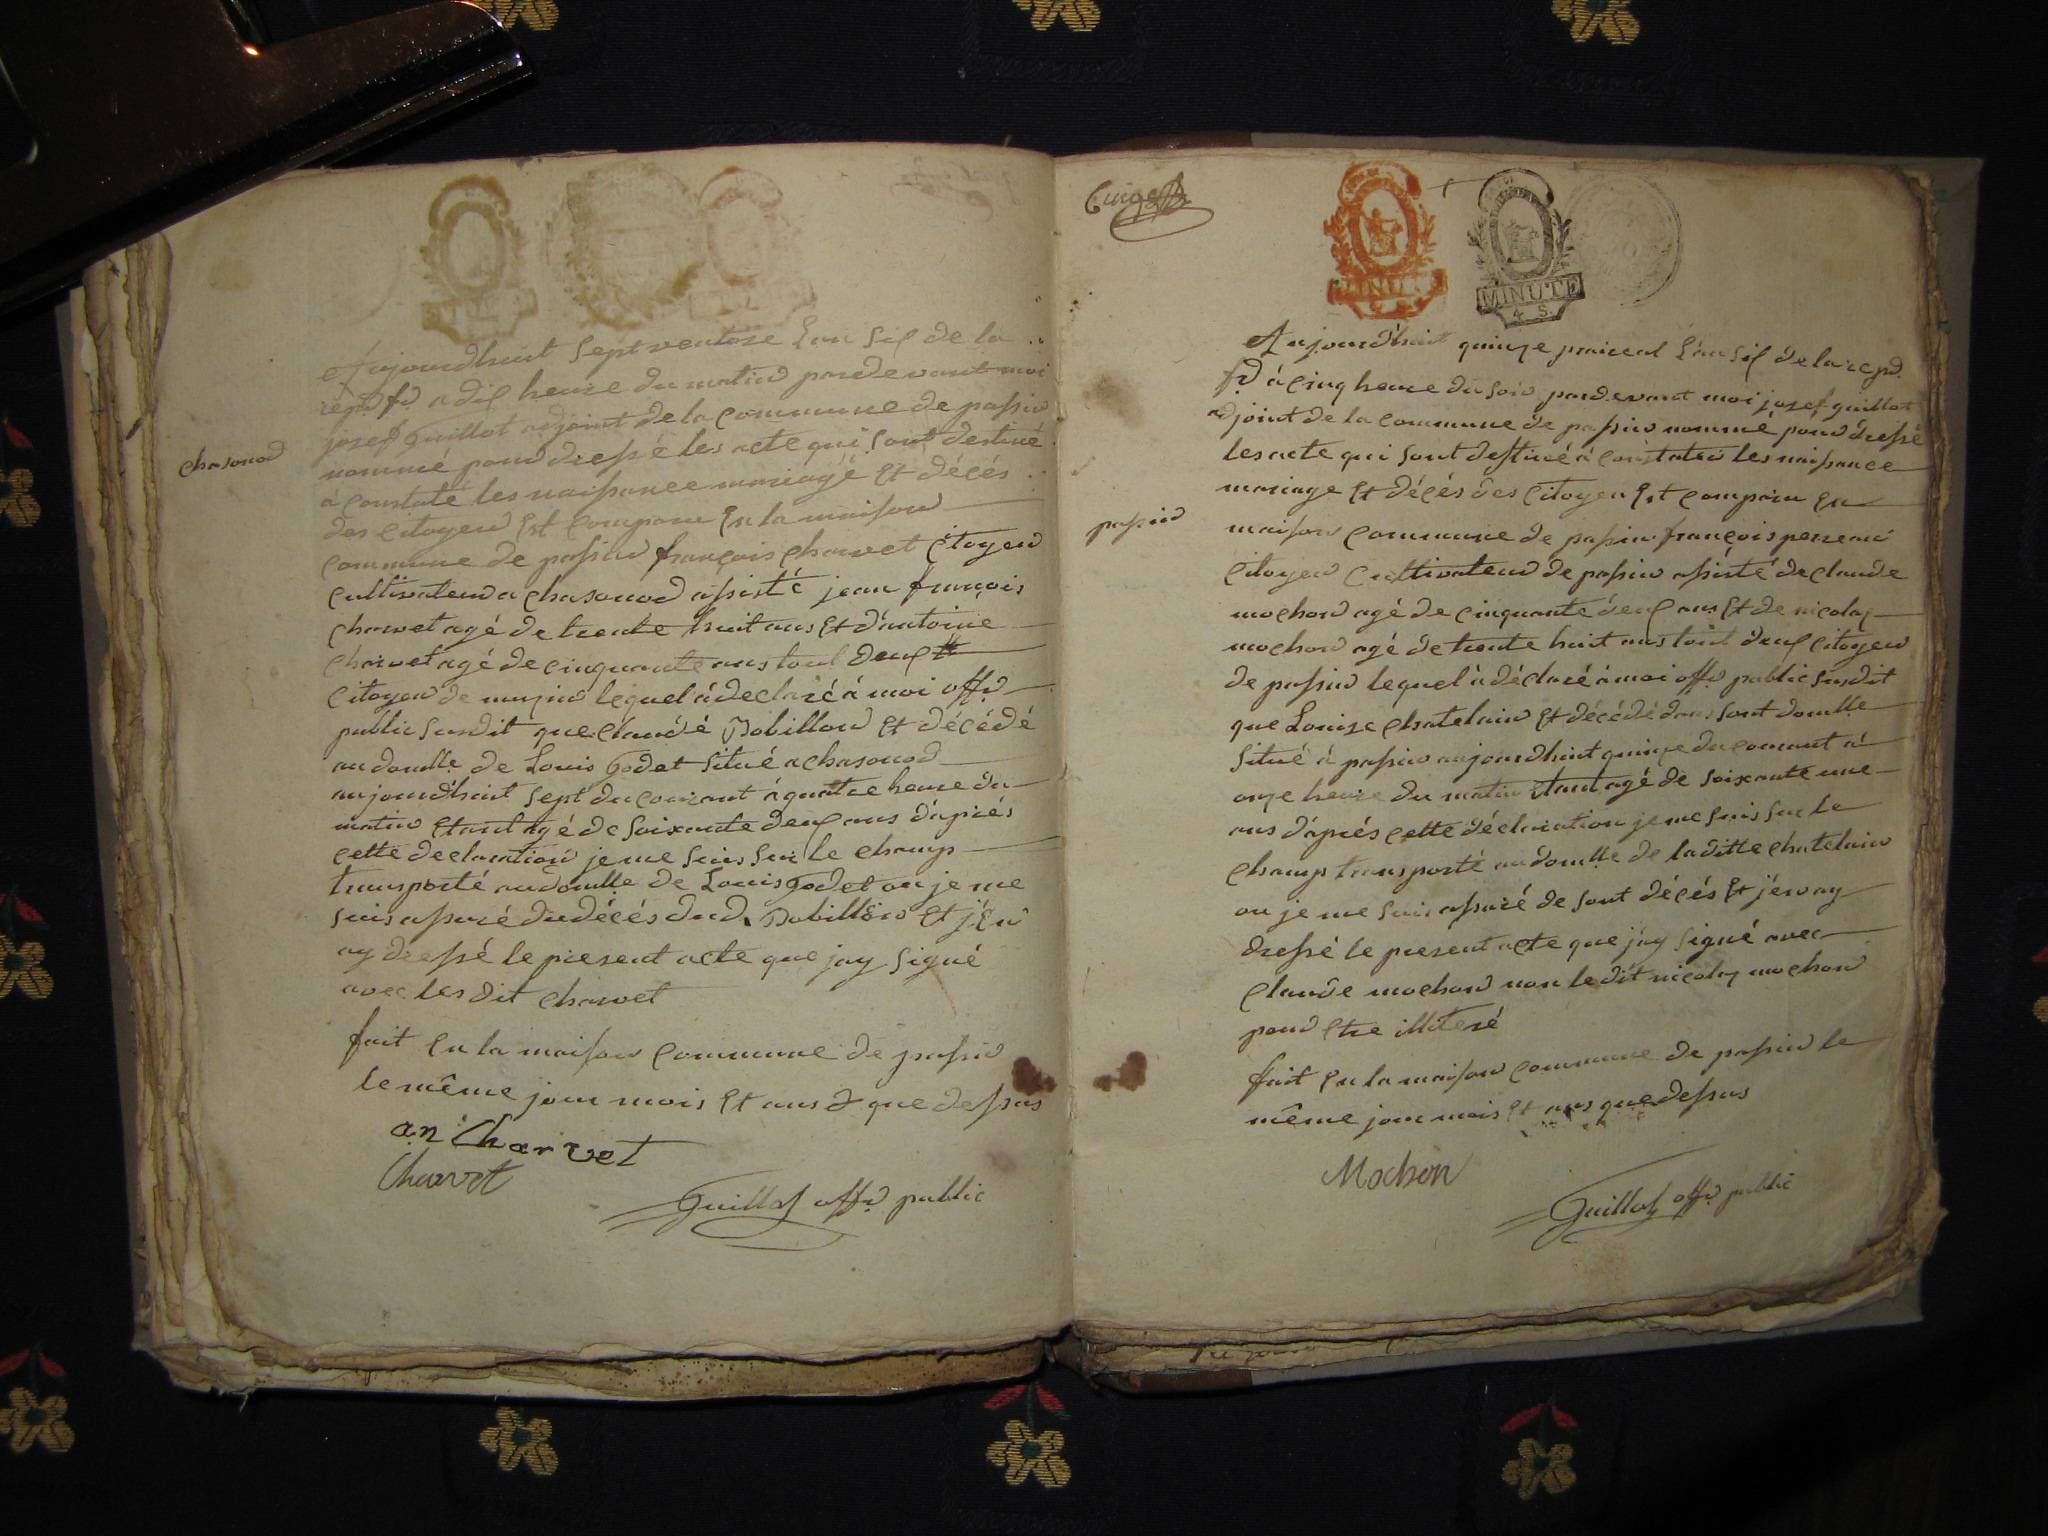 chasonod
aujourdhuit sept ventose Lan six de la
rep. fr. a dix heure du matin pardevant moi
josef Guillot adjoint de la commune de passin
nommé pour dressé les acte qui sont destiné
à constaté les naissance mariage Et décés
des Citoyen Est comparu En la maison
commune de passin françois charvet Citoyen
cultivateur a chasonod assisté jean françois
charvet agé de trente huit ans Et d'antoine
charvet agé de cinquante ans tout deux
Citoyen de muzin lequel à declaré à moi off.r
public susdit que claudé Bobillon Et décédé
au domlle de Louis Godet situé a chasonod
aujourdhuit sept du courant à quatre heure du
matin Etant agé de soixante deux ans dáprés
cette declaration je me suis sur le champ
transporté au domlle de Louis Godet ou je me
suis assuré du décés dud. Bobillon Et j'En
ay dressé le present acte que jay signé
avec les dit charvet
fait En la maison commune de passin
le même jour mois Et ans que dessus
an Charvet
Charvet
Guillot off.r public
MINUTE
MINUTE
4 S.
passin
Aujourdhuit quinze prairial Lan six de la rep.
fr. à cinq heure du soir pardevant moi josef guillot
adjoint de la commune de passin nommé pour dressé
les acte qui sont destiné à constater les naissance
mariage Et décés des Citoyen Est comparu En
maison commune de passin françois perreau
Citoyen cultivateur de passin assisté de claude
mochon agé de cinquante deux ans Et de nicolas
mochon agé de trente huit ans tout deux Citoyen
de passin lequel à déclaré à moi off.r public susdit
que Louise chatelain Et décédé dans sont domlle
situé à passin aujourdhuit quinze du courant à
onze heure du matin Etant agé de soixante une
ans dáprés cette déclaration je me suis sur le
champ transporté au domlle de laditte chatelain
ou je me suis assuré de sont décés Et j'en ay
dressé le present acte que j'ay signé avec
claude mochon non ledit nicolas mochon
pour Etre illiteré
fait En la maison commune de passin le
même jour mois Et ans que dessus
Mochon
Guillot off.r public